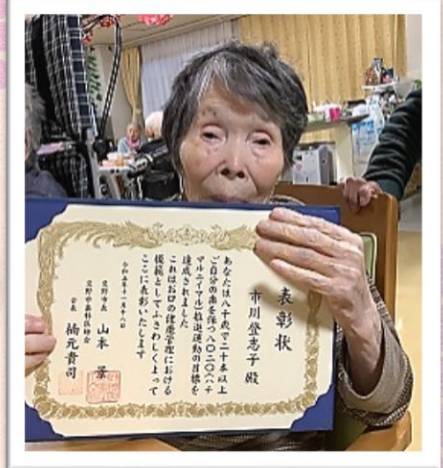 表彰状
市川登志子殿
あなたは八十歳で二十本以上
ご自分の歯を保つ八〇二〇（ハチ
マルニイマル）推進運動の目標を
達成されました
これはお口の健康管理における
模範としてふさわしくよって
ここに表彰いたします
令和五年十一月十八日
交野市長 山本 景
交野市歯科医師会
会長 楠元貴司